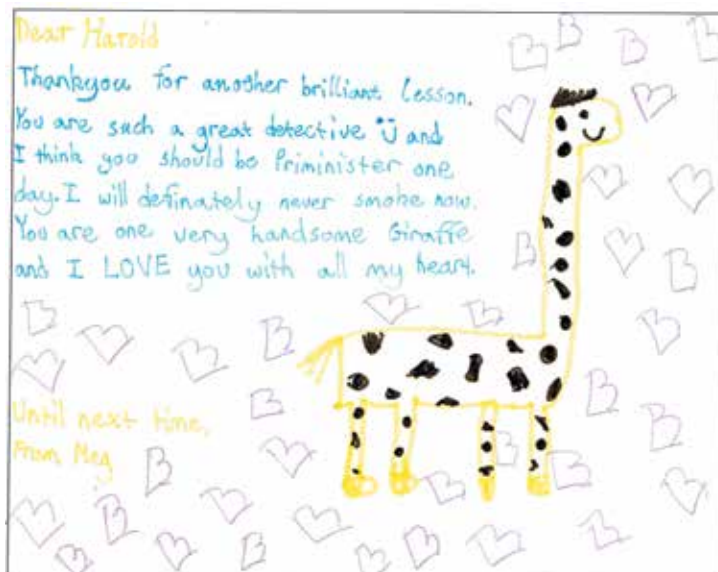 Dear Harold
Thankyou for another brilliant lesson.
You are such a great detective and
I think you should be Priminister one
day. I will definately never smoke now.
You are one very handsome Giraffe
and I LOVE you with all my heart.
Until next time,
From Meg